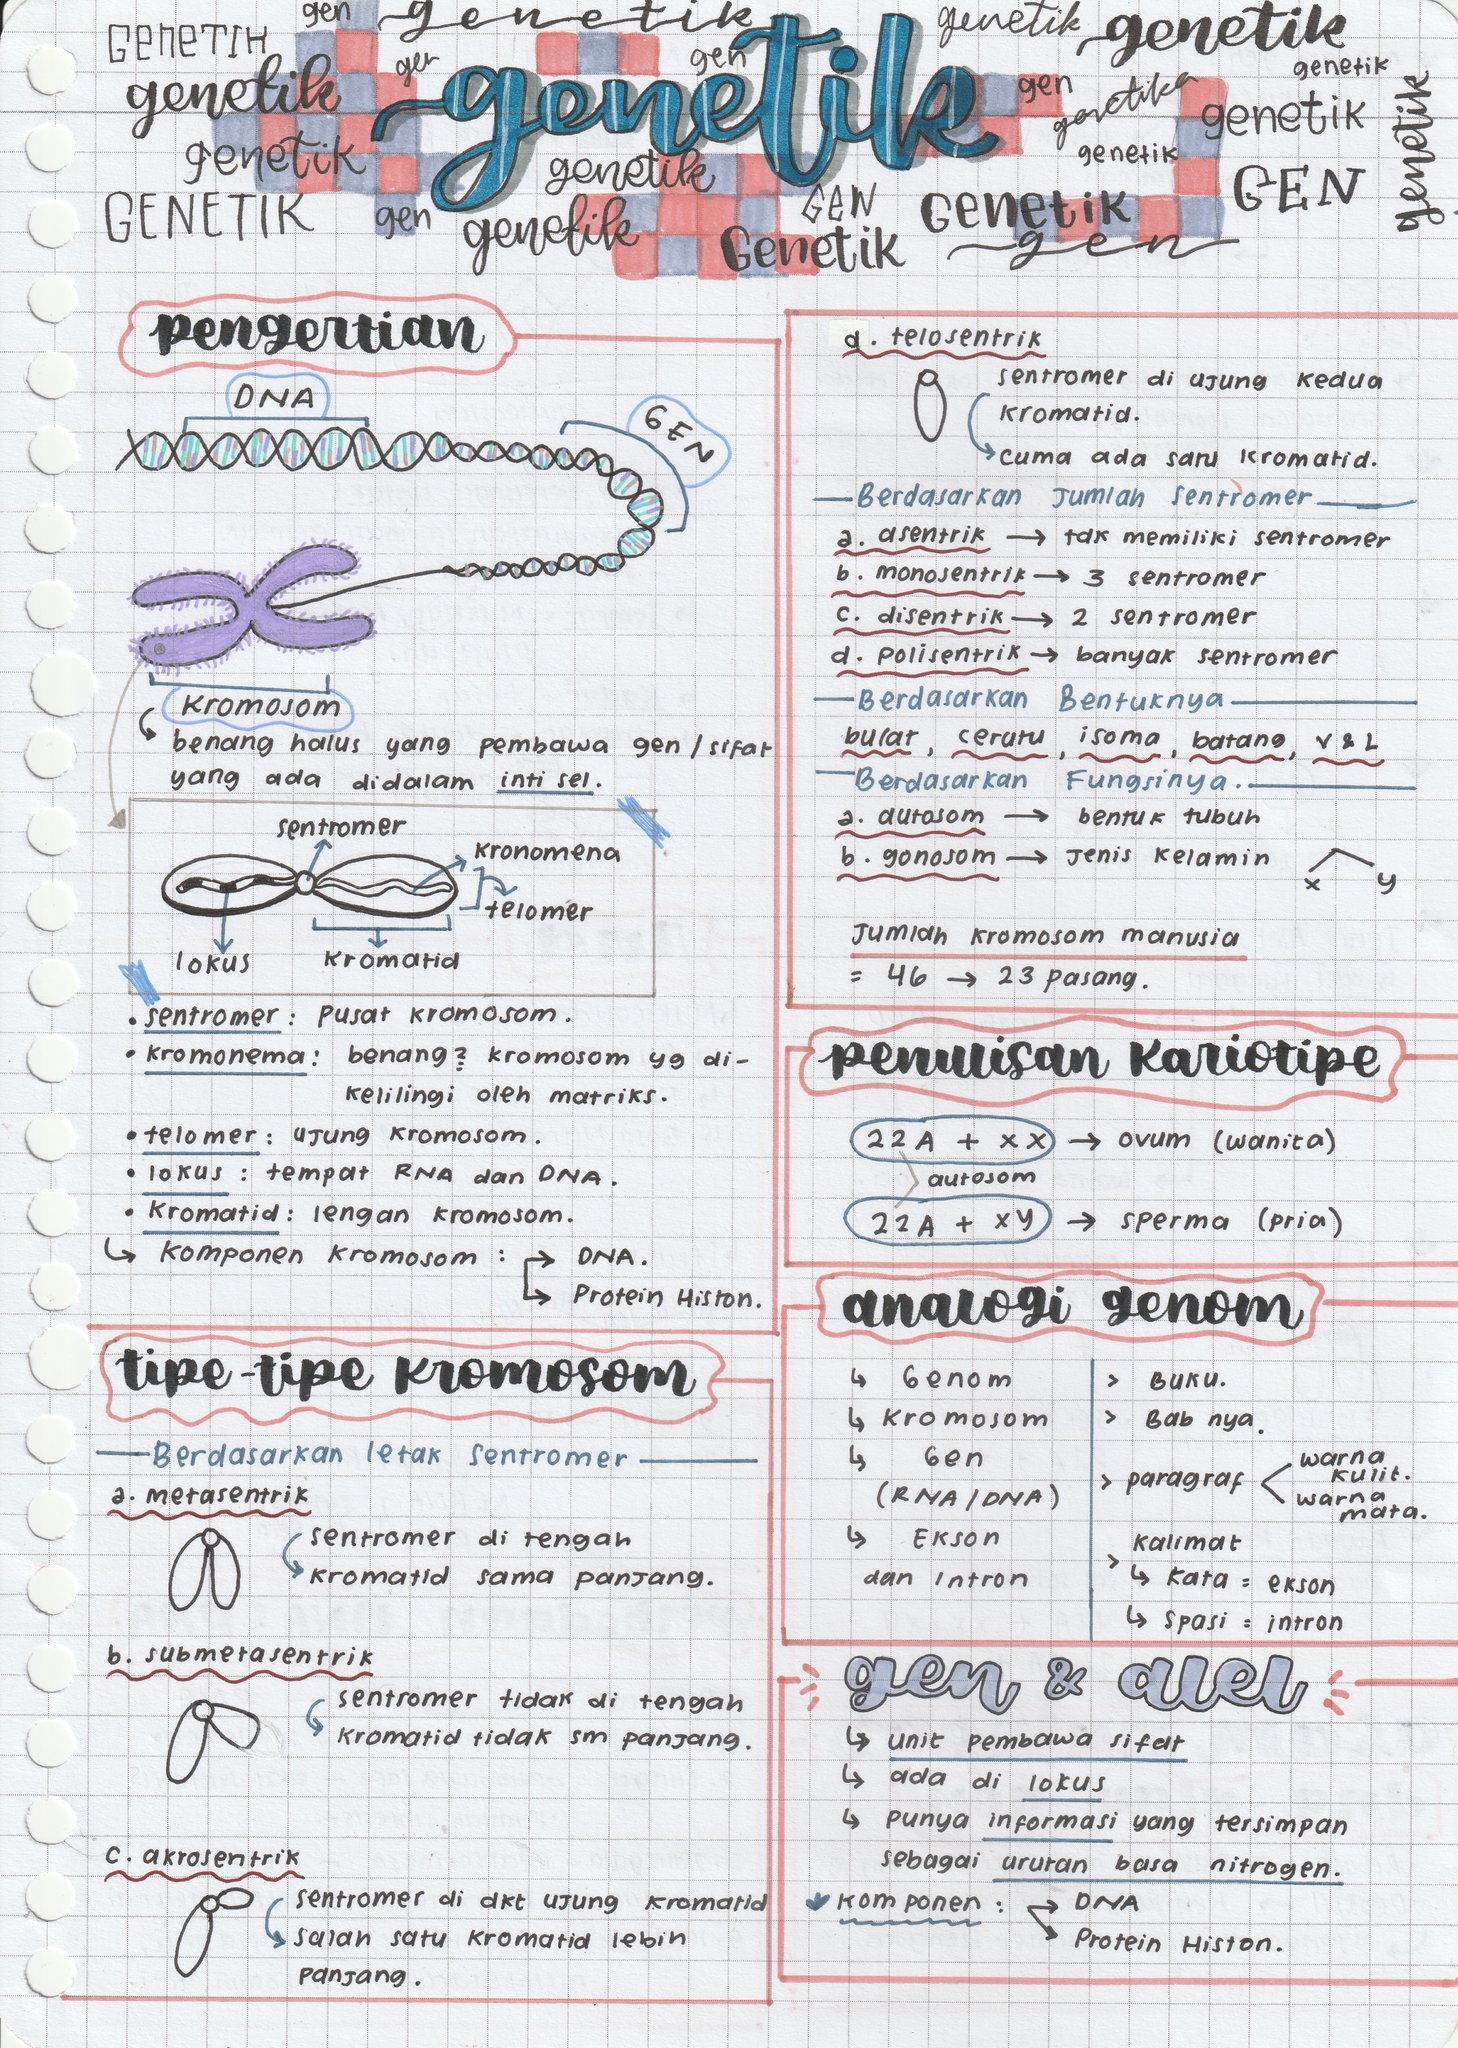 GENETIK
gen
genetik
genetik
gen
genetik
gen
genetik
genetik
GENETIK
gen
genetik
genetik
GEN
Genetik
genetik
genetik
genetik
gen
genetika
genetik
genetik
genetik
GEN
Genetik
gen
genetik
pengertian
DNA
GEN
Kromosom
benang halus yang pembawa gen/sifat
yang ada didalam inti sel.
sentromer
kronomena
telomer
lokus
kromatid
• sentromer : pusat kromosom.
• kromonema : benang² kromosom yg di-
kelilingi oleh matriks.
• telomer : ujung kromosom.
• lokus : tempat RNA dan DNA.
• kromatid : lengan kromosom.
↳ komponen kromosom : → DNA.
↳ Protein Histon.
tipe-tipe kromosom
Berdasarkan letak sentromer
a. metasentrik
sentromer di tengah
kromatid sama panjang.
b. submetasentrik
sentromer tidak di tengah
kromatid tidak sm panjang.
c. akrosentrik
sentromer di dkt ujung kromatid
salah satu kromatid lebih
panjang.
d. telosentrik
sentromer di ujung kedua
kromatid.
cuma ada satu kromatid.
Berdasarkan Jumlah sentromer
a. asentrik → tdk memiliki sentromer
b. monosentrik → 3 sentromer
c. disentrik → 2 sentromer
d. polisentrik → banyak sentromer
Berdasarkan Bentuknya
bulat, cerutu, isoma, batang, V & L
Berdasarkan Fungsinya.
a. autosom → bentuk tubuh
b. gonosom → jenis kelamin
x y
Jumlah kromosom manusia
= 46 → 23 pasang.
penulisan kariotipe
22A + XX → ovum (wanita)
autosom
22A + XY → sperma (pria)
analogi genom
↳ Genom > Buku.
↳ Kromosom > Bab nya.
↳ Gen
(RNA/DNA) > paragraf
warna
kulit.
warna
mata.
↳ Ekson
dan Intron
> kalimat
↳ kata = ekson
↳ spasi = intron
gen & alel
↳ unit pembawa sifat
↳ ada di lokus
↳ punya informasi yang tersimpan
sebagai urutan basa nitrogen.
komponen : → DNA
→ Protein Histon.